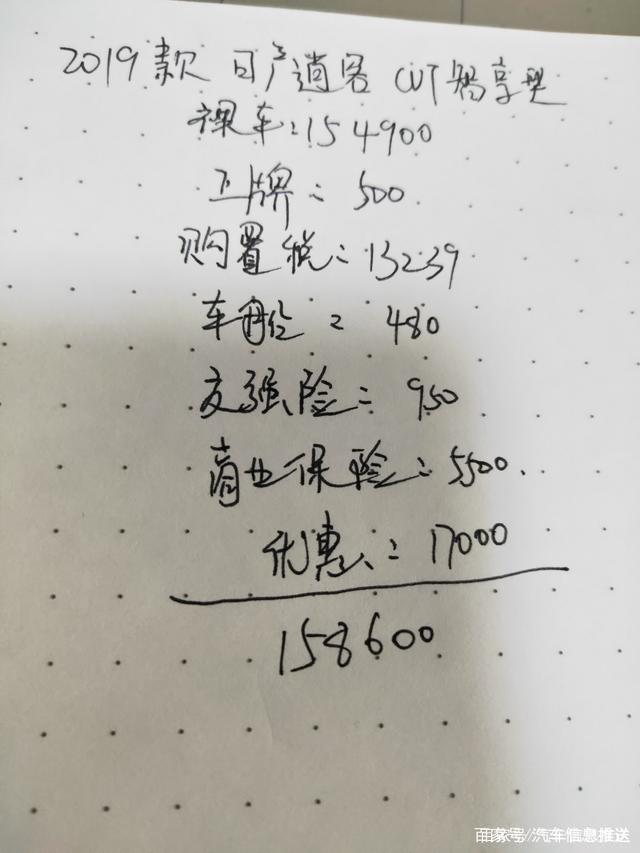 2019款 日产逍客 CVT智享型
裸车:154900
上牌:500
购置税:13239
车船:480
交强险:950
商业保险:5500.
优惠:17000
158600
百家号/汽车信息推送